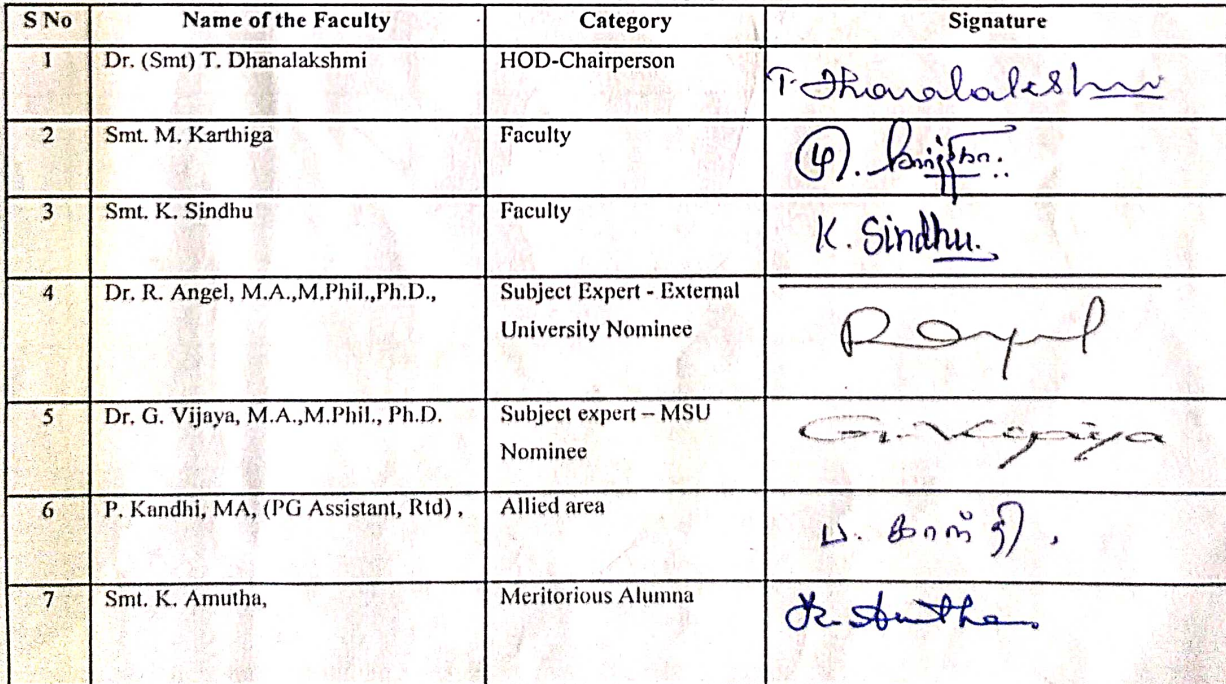 S No Name of the Faculty Category Signature
1 Dr. (Smt) T. Dhanalakshmi HOD-Chairperson T. Dhanalakshmi
2 Smt. M. Karthiga Faculty
3 Smt. K. Sindhu Faculty K. Sindhu.
4 Dr. R. Angel, M.A.,M.Phil.,Ph.D., Subject Expert - External
University Nominee
5 Dr. G. Vijaya, M.A.,M.Phil., Ph.D. Subject expert – MSU
Nominee G. Vijaya
6 P. Kandhi, MA, (PG Assistant, Rtd) , Allied area ப. காந்தி.
7 Smt. K. Amutha, Meritorious Alumna K. Amutha